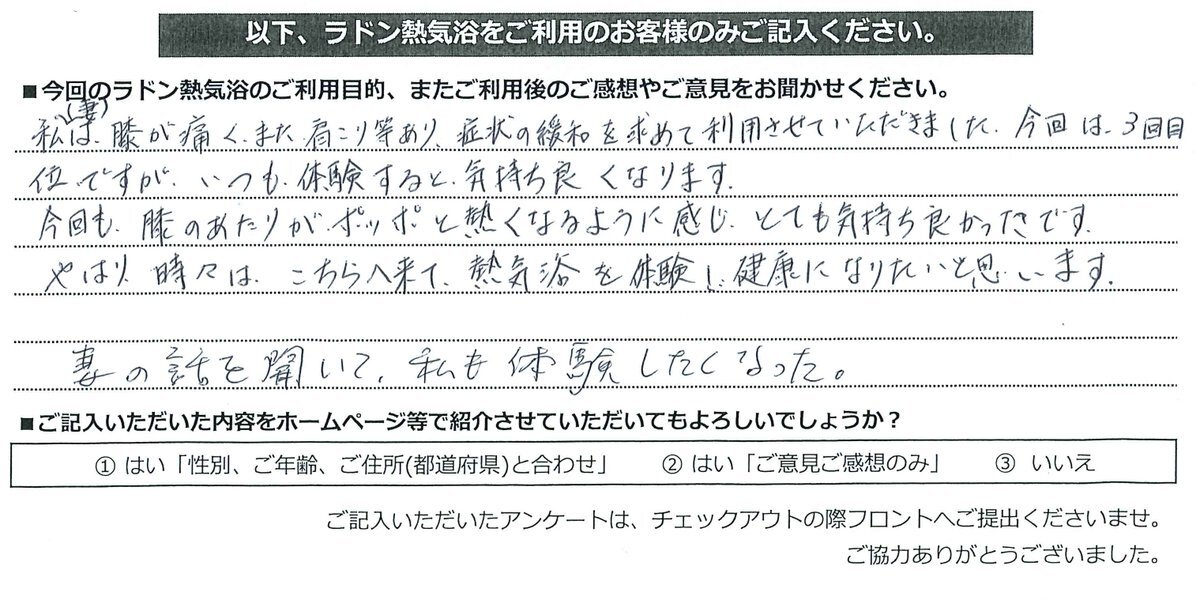 以下、ラドン熱気浴をご利用のお客様のみご記入ください。
■今回のラドン熱気浴のご利用目的、またご利用後のご感想やご意見をお聞かせください。
私(妻)は、膝が痛く、また肩こり等あり、症状の緩和を求めて利用させていただきました。今回は、3回目
位ですが、いつも、体験すると、気持ち良くなります。
今回も、膝のあたりがポッポと熱くなるように感じ、とても気持ち良かったです。
やはり、時々は、こちらへ来て、熱気浴を体験し、健康になりたいと思います。
妻の話を聞いて、私も体験したくなった。
■ご記入いただいた内容をホームページ等で紹介させていただいてもよろしいでしょうか？
① はい「性別、ご年齢、ご住所(都道府県)と合わせ」 ② はい「ご意見ご感想のみ」 ③ いいえ
ご記入いただいたアンケートは、チェックアウトの際フロントへご提出くださいませ。
ご協力ありがとうございました。